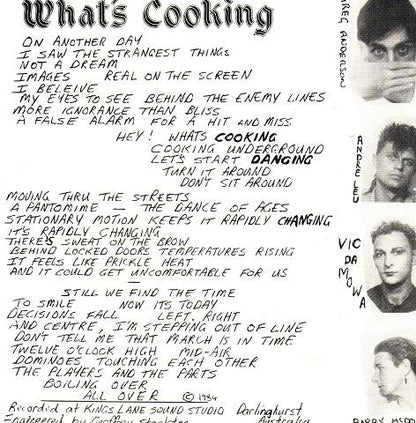 What's Cooking
ON ANOTHER DAY
I SAW THE STRANGEST THINGS
NOT A DREAM
IMAGES REAL ON THE SCREEN
I BELEIVE
MY EYES TO SEE BEHIND THE ENEMY LINES
MORE IGNORANCE THAN BLISS
A FALSE ALARM FOR A HIT AND MISS
HEY! WHATS COOKING
COOKING UNDERGROUND
LET'S START DANCING
TURN IT AROUND
DON'T SIT AROUND
MOVING THRU THE STREETS
A PANTOMIME — THE DANCE OF AGES
STATIONARY MOTION KEEPS IT RAPIDLY CHANGING
IT'S RAPIDLY CHANGING
THERE'S SWEAT ON THE BROW
BEHIND LOCKED DOORS TEMPERATURES RISING
IT FEELS LIKE PRICKLE HEAT
AND IT COULD GET UNCOMFORTABLE FOR US
—
STILL WE FIND THE TIME
TO SMILE NOW ITS TODAY
DECISIONS FALL LEFT, RIGHT
AND CENTRE, I'M STEPPING OUT OF LINE
DON'T TELL ME THAT MARCH IS IN TIME
TWELVE O'CLOCK HIGH MID-AIR
DOMINOES TOUCHING EACH OTHER
THE PLAYERS AND THE PARTS
BOILING OVER
ALL OVER © 1984
Recorded at KINGS LANE SOUND STUDIO Darlinghurst
Engineered by Geoffrey Australia
GREG ANDERSON
ANDRÉ LEU
VIC
DA
MOWA
BARRY